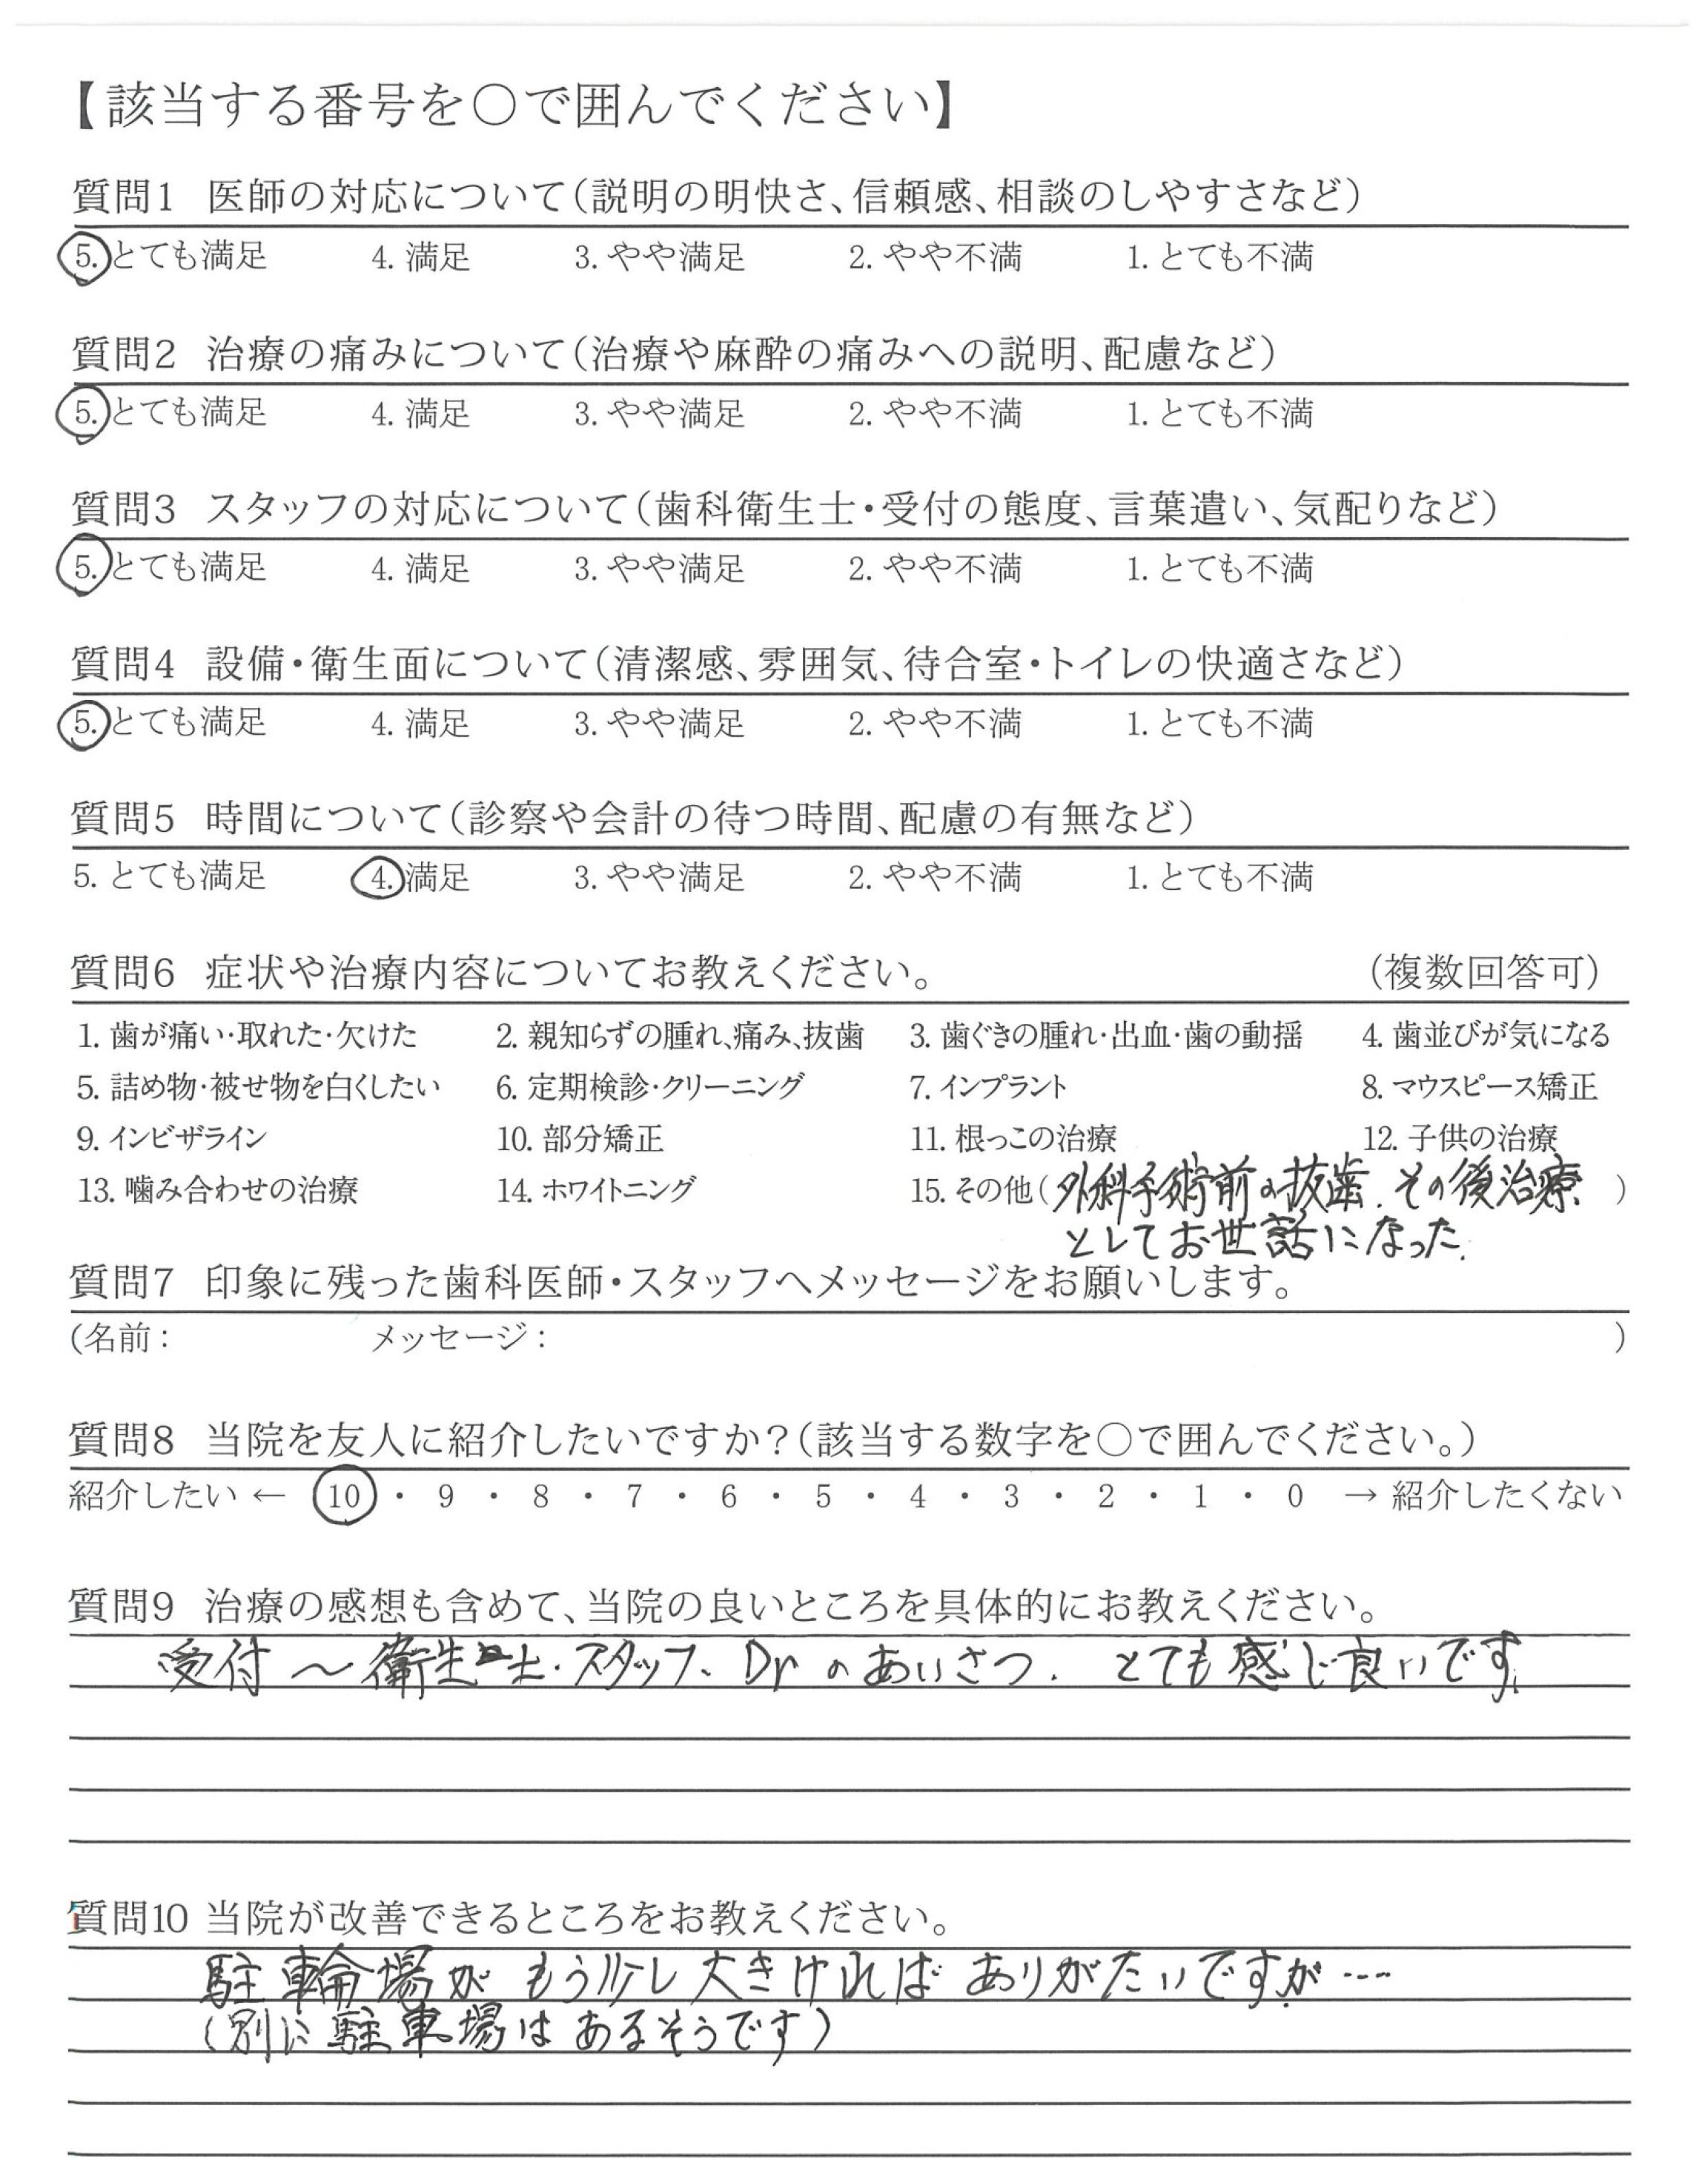 【該当する番号を○で囲んでください】
質問1 医師の対応について(説明の明快さ、信頼感、相談のしやすさなど)
5. とても満足 4. 満足 3. やや満足 2. やや不満 1. とても不満
質問2 治療の痛みについて(治療や麻酔の痛みへの説明、配慮など)
5. とても満足 4. 満足 3. やや満足 2. やや不満 1. とても不満
質問3 スタッフの対応について(歯科衛生士・受付の態度、言葉遣い、気配りなど)
5. とても満足 4. 満足 3. やや満足 2. やや不満 1. とても不満
質問4 設備・衛生面について(清潔感、雰囲気、待合室・トイレの快適さなど)
5. とても満足 4. 満足 3. やや満足 2. やや不満 1. とても不満
質問5 時間について(診察や会計の待つ時間、配慮の有無など)
5. とても満足 4. 満足 3. やや満足 2. やや不満 1. とても不満
質問6 症状や治療内容についてお教えください。 (複数回答可)
1. 歯が痛い・取れた・欠けた 2. 親知らずの腫れ、痛み、抜歯 3. 歯ぐきの腫れ・出血・歯の動揺 4. 歯並びが気になる
5. 詰め物・被せ物を白くしたい 6. 定期検診・クリーニング 7. インプラント 8. マウスピース矯正
9. インビザライン 10. 部分矯正 11. 根っこの治療 12. 子供の治療
13. 噛み合わせの治療 14. ホワイトニング 15. その他(外科手術前の抜歯、その後治療)
としてお世話になった。
質問7 印象に残った歯科医師・スタッフへメッセージをお願いします。
(名前: メッセージ: )
質問8 当院を友人に紹介したいですか?(該当する数字を○で囲んでください。)
紹介したい ← 10 ・ 9 ・ 8 ・ 7 ・ 6 ・ 5 ・ 4 ・ 3 ・ 2 ・ 1 ・ 0 → 紹介したくない
質問9 治療の感想も含めて、当院の良いところを具体的にお教えください。
受付〜衛生士・スタッフ、Drのあいさつ、とても感じ良いです。
質問10 当院が改善できるところをお教えください。
駐輪場がもう少し大きければありがたいですが…
(別に駐車場はあるそうです)